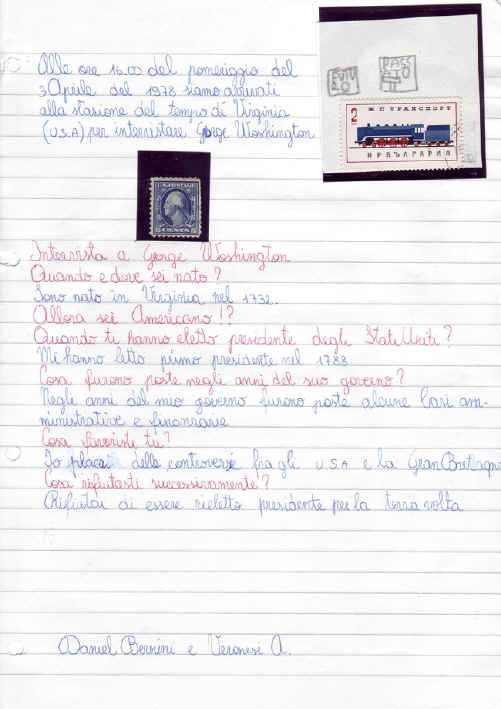 Alle ore 16.00 del pomeriggio del
3 Aprile del 1978 siamo arrivati
alla stasione del tempo di Virginia
(U.S.A) per intervistare George Washington
FUTU
RO
PASS
ATO
II
2
ЖП ТРАНСПОРТ
НР БЪЛГАРИЯ
U.S. POSTAGE
5 CENTS 5
Intervista a George Washington
Quando e dove sei nato?
Sono nato in Virginia nel 1732.
Allora sei Americano!?
Quando ti hanno eletto presidente degli Stati Uniti?
Mi hanno letto primo presidente nel 1788
Cosa furono poste negli anni del suo governo?
Negli anni del mio governo furono poste alcune basi am-
ministrative e finanziarie
Cosa favoristi tu?
Io placai delle controversie fra gli U.S.A e la Gran Bretagna
Cosa rifiutasti successivamente?
Rifiutai di essere rieletto presidente per la terza volta
Daniel Bernini e Veronesi A.